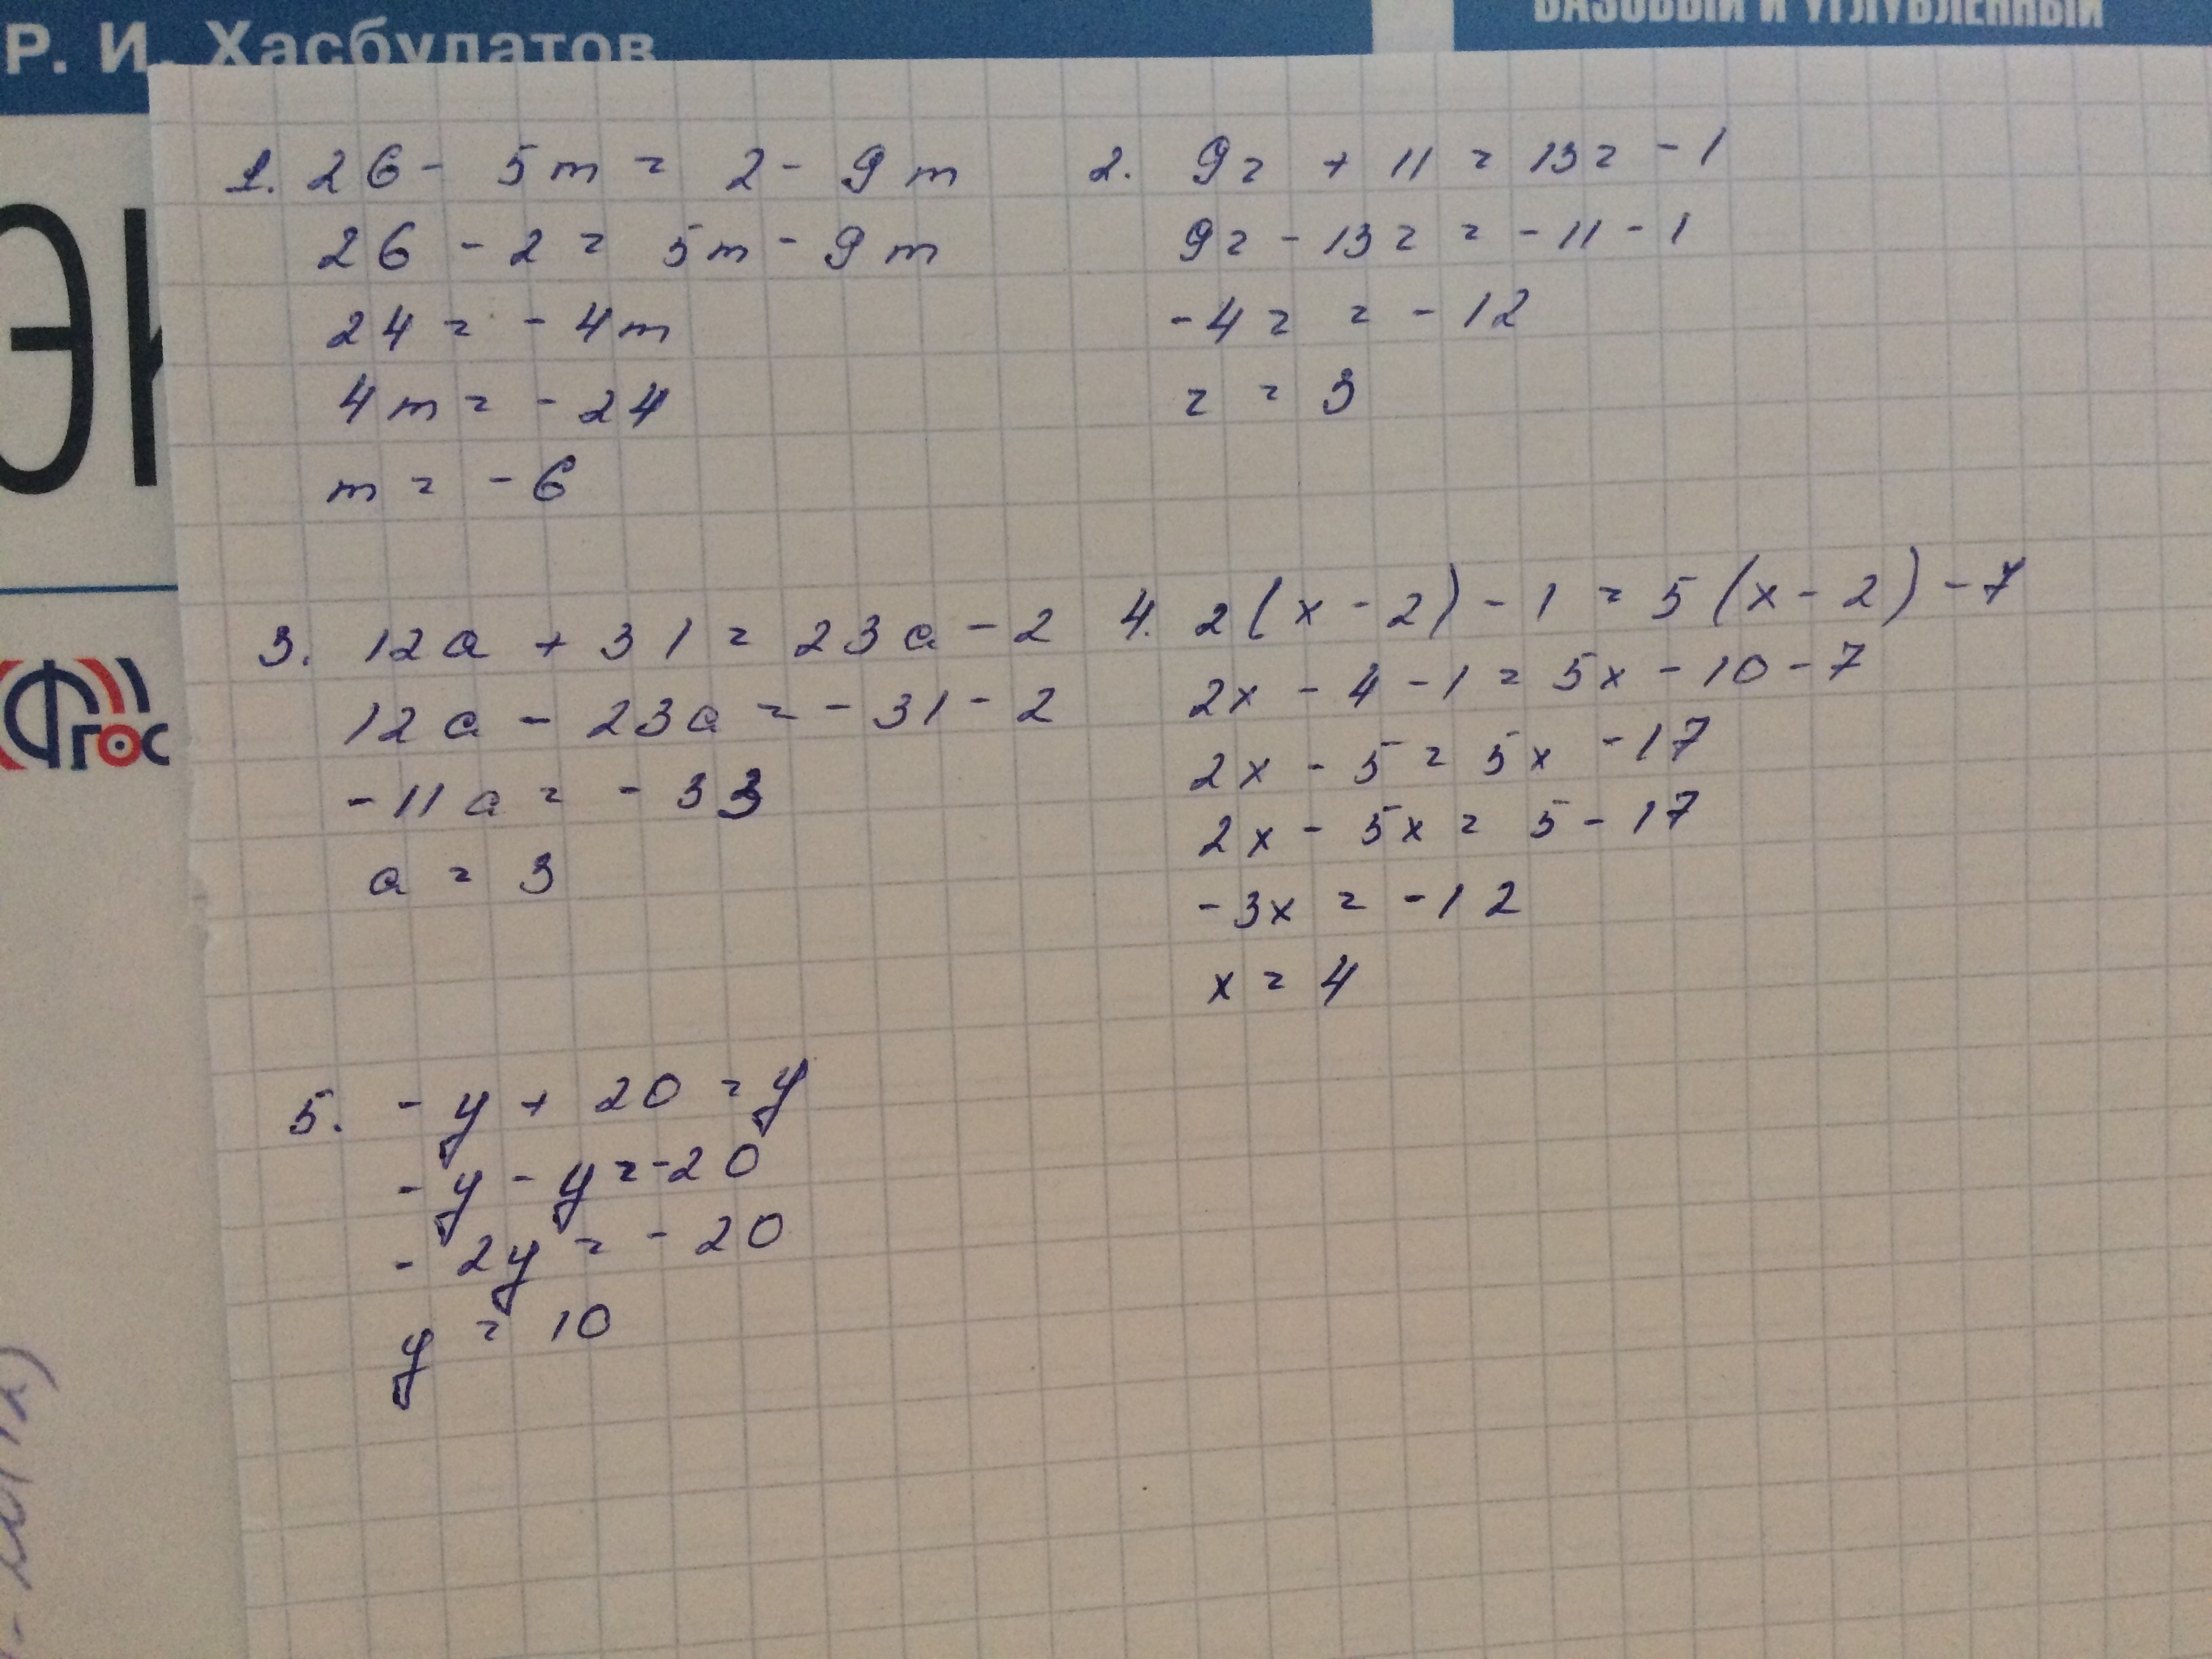 Р. И. Хасбулатов
БАЗОВЫЙ И УГЛУБЛЕННЫЙ
ЭК
ФГОС
1. 26 - 5m = 2 - 9m
26 - 2 = 5m - 9m
24 = - 4m
4m = - 24
m = - 6
2. 9z + 11 = 13z - 1
9z - 13z = - 11 - 1
- 4z = - 12
z = 3
3. 12a + 31 = 23a - 2
12a - 23a = - 31 - 2
- 11a = - 33
a = 3
4. 2(x - 2) - 1 = 5(x - 2) - 7
2x - 4 - 1 = 5x - 10 - 7
2x - 5 = 5x - 17
2x - 5x = 5 - 17
- 3x = - 12
x = 4
5. - y + 20 = y
- y - y = - 20
- 2y = - 20
y = 10